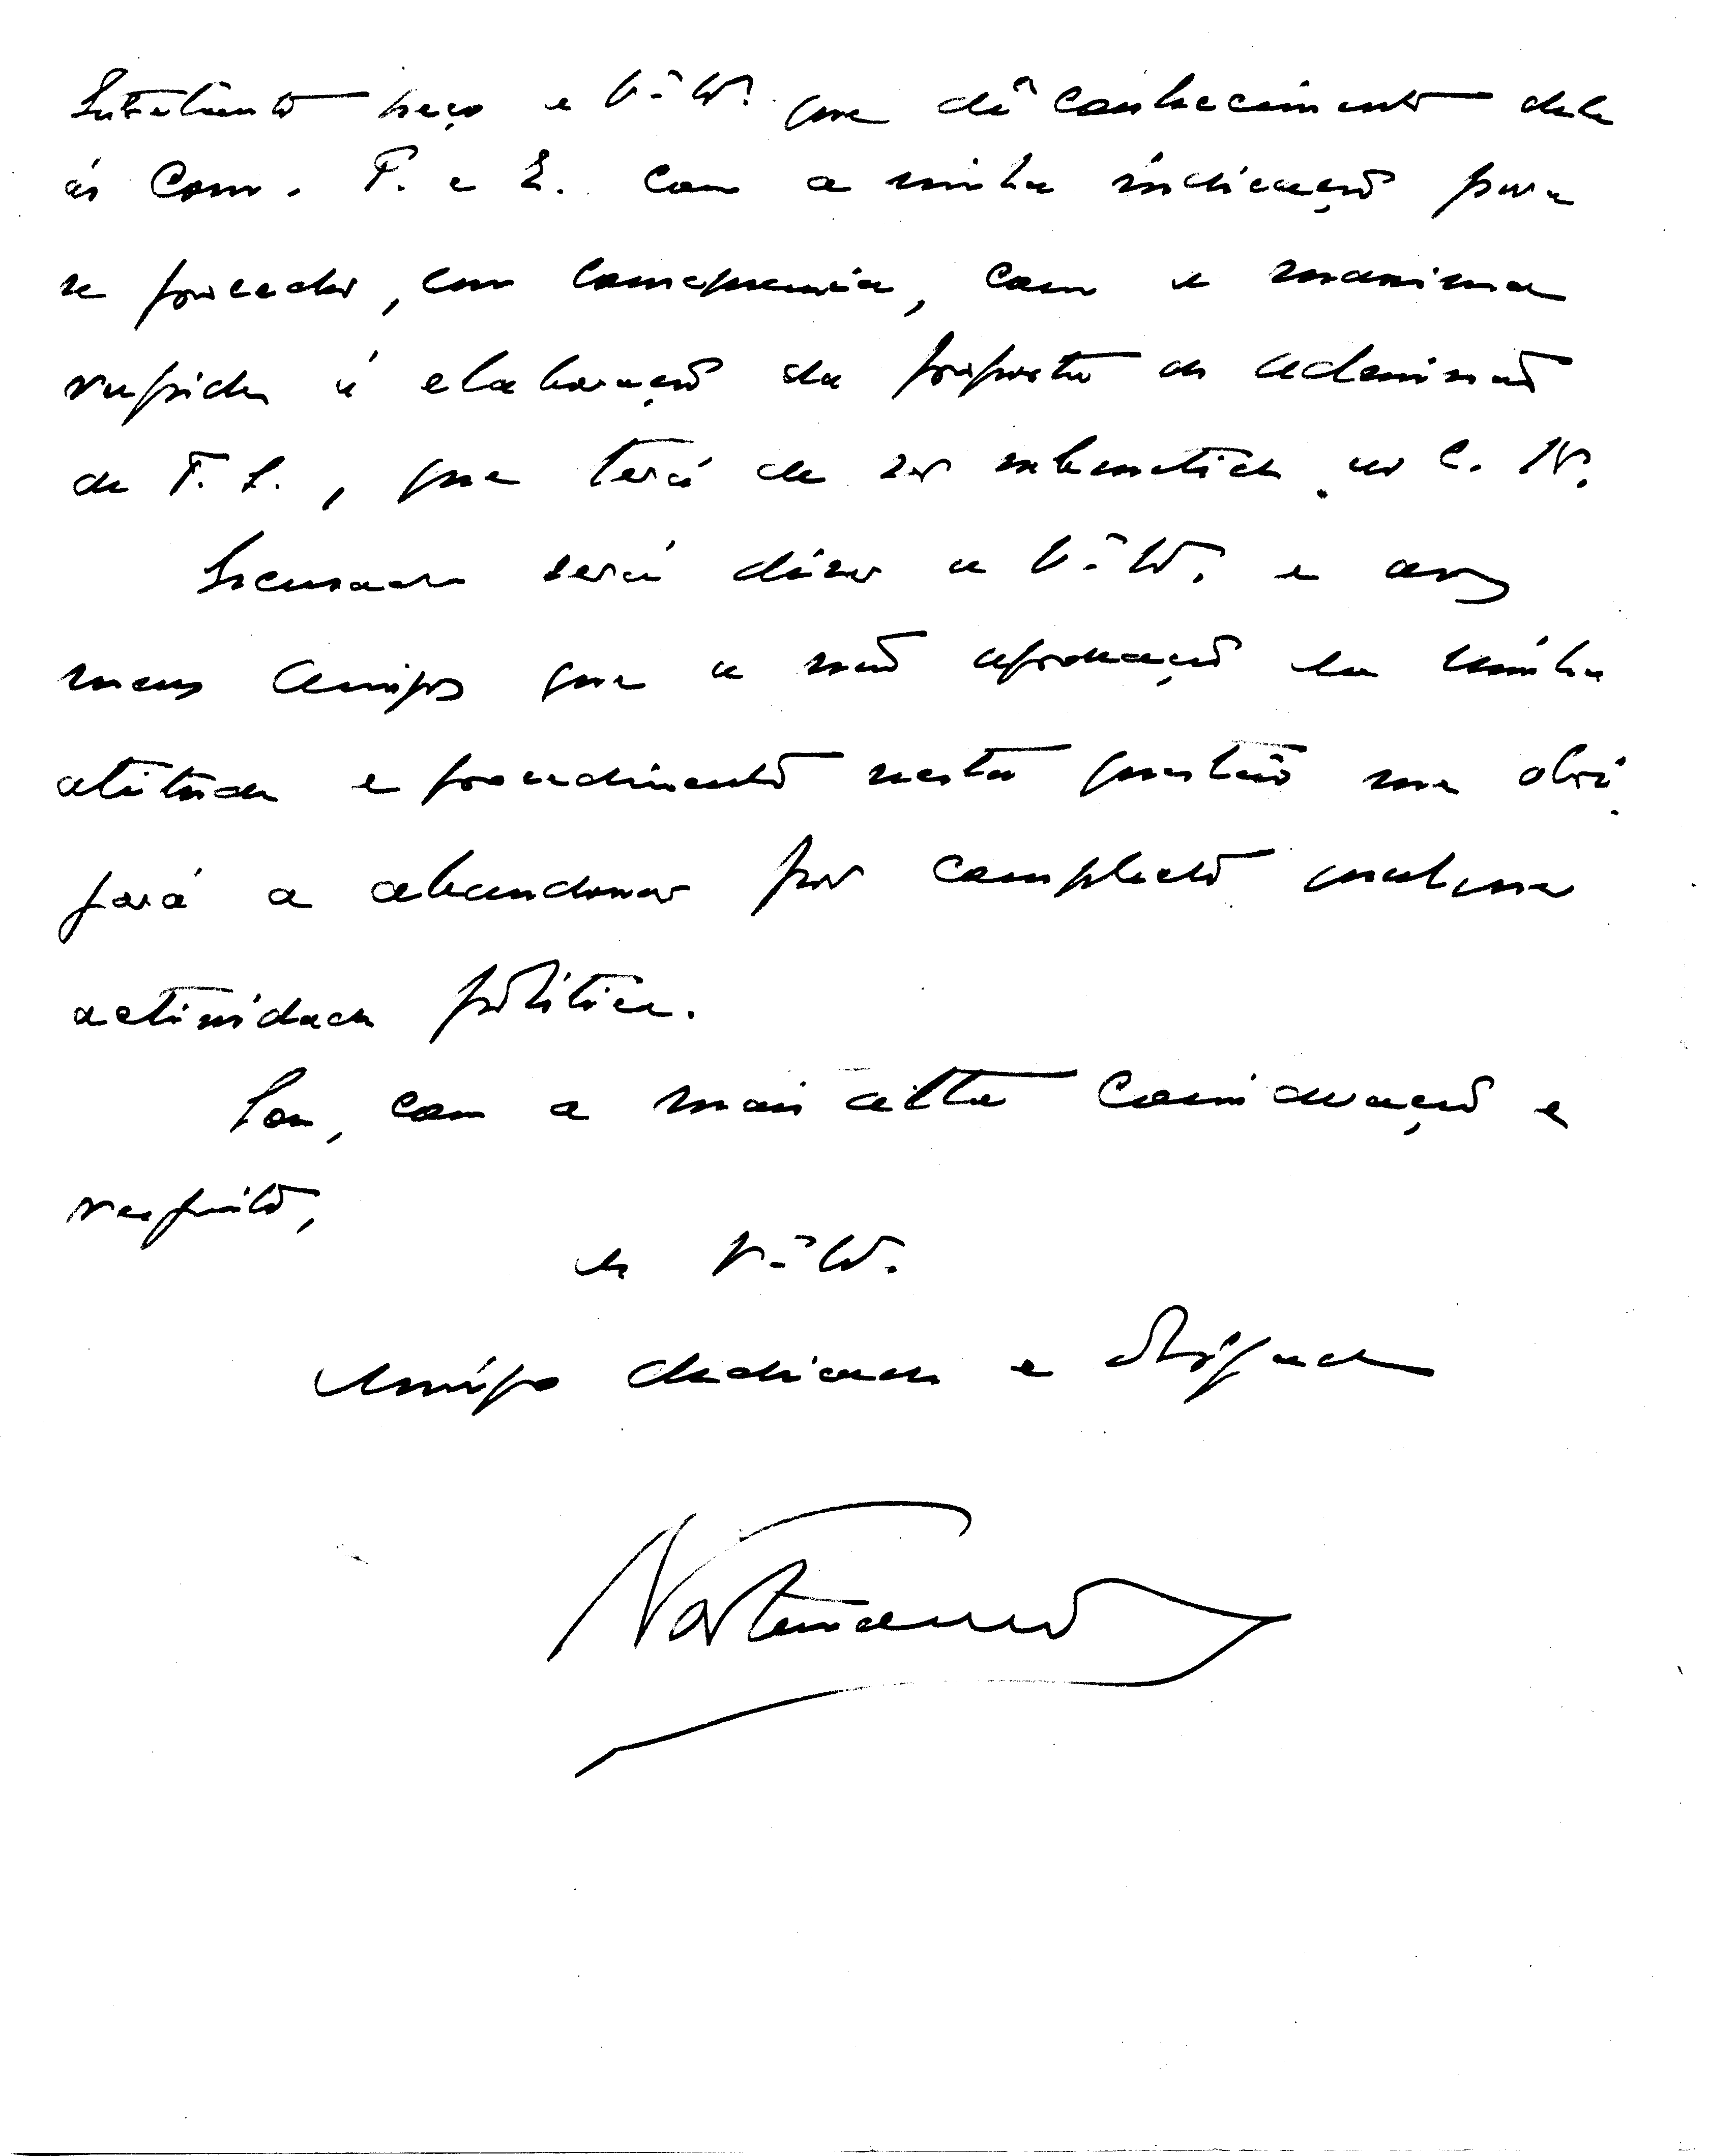 Entretanto peço a V. que dê conhecimento dele
ás Com. P. e E. com a minha indicação para
se proceder, em consequencia, com a maxima
rapidez á elaboração da proposta de ademissão
de F. L., que terá de ser submetida ao C. N.
Escusado será dizer a V. e aos
meus amigos que a não aprovação da minha
atitude e procedimento nesta questão me obri
gará a abandonar por completo qualquer
actividade politica.
Sou, com a mais alta consideração e
respeito,
de V.
Amigo dedicado e obrigado